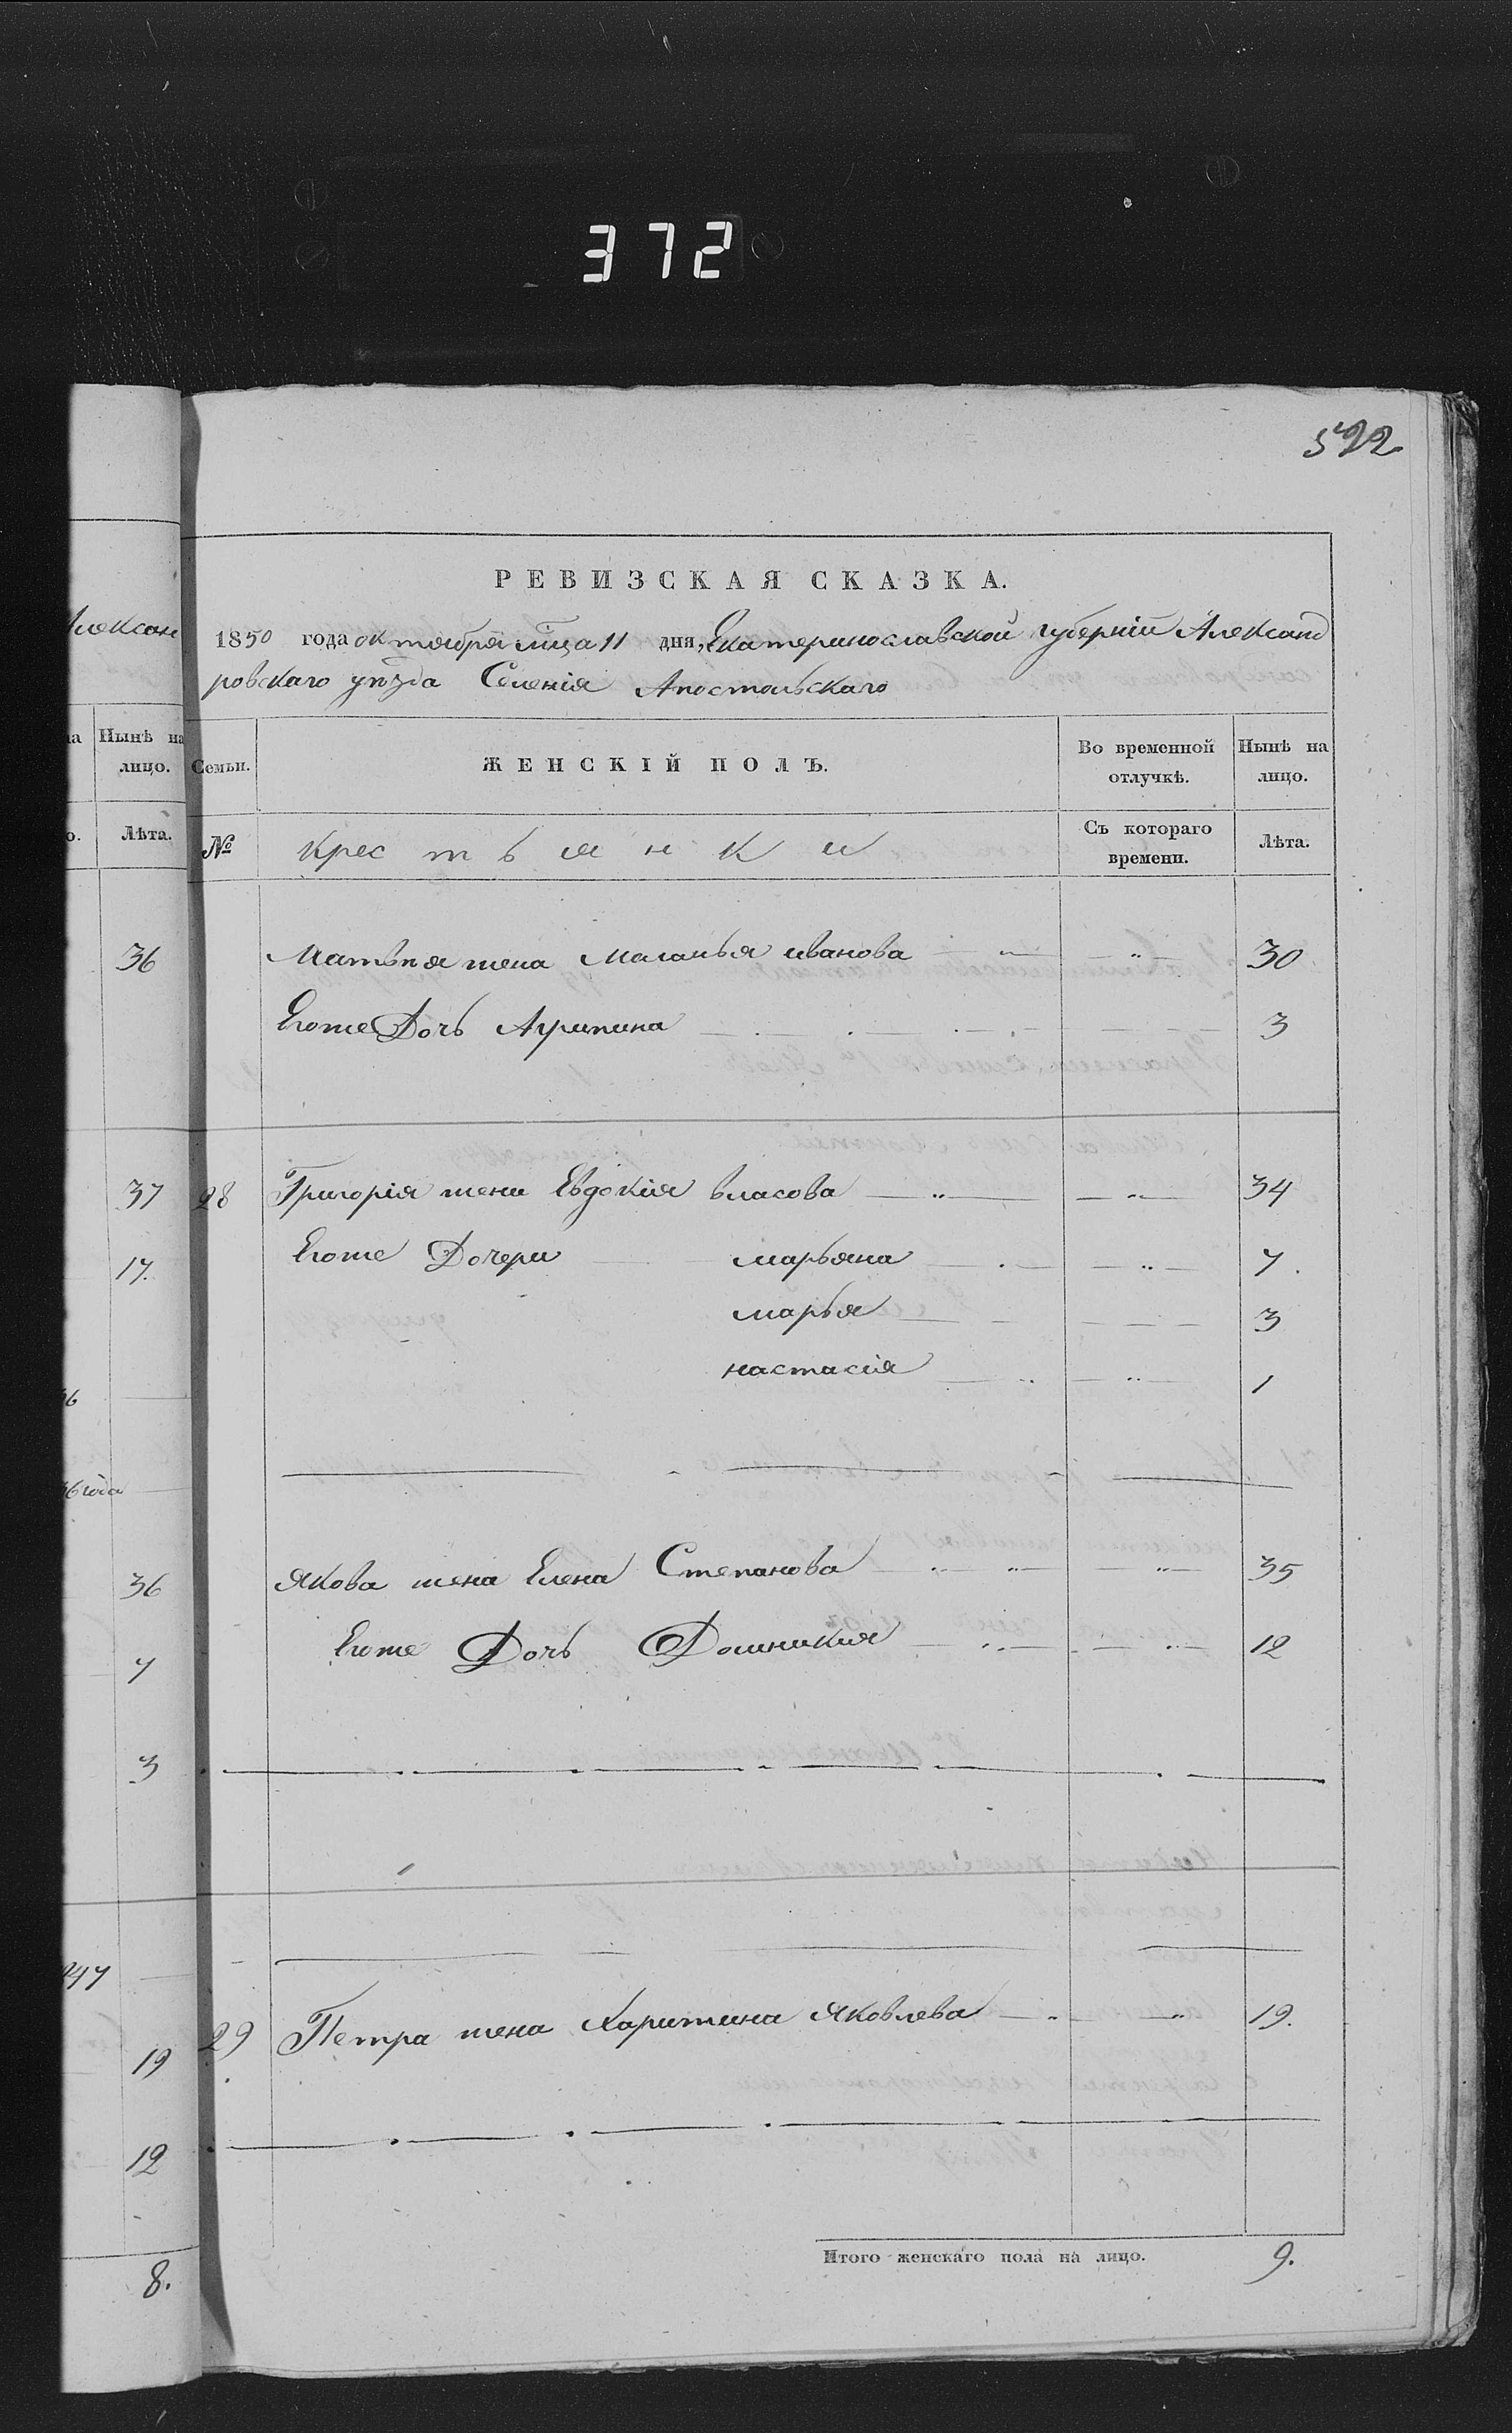 372
522
РЕВИЗСКАЯ СКАЗКА.
1850 года октября мца 11 дня, Екатеринославской губерніи Александ
ровскаго уѣзда Селенія Апостольскаго
Алексан
Нынѣ на лицо.
Лѣта.
Семьи.
ЖЕНСКІЙ ПОЛЪ.
Во временной отлучкѣ.
Нынѣ на лицо.
№
Крестьянки
Съ котораго времени.
Лѣта.
36
Матвѣя жена Маланья иванова 30
Егоже Дочь Агрипина 3
37
28 Григорія жена Евдокія власова 34
17.
Егоже Дочери марьяна 7.
марья 3
настасія 1
36
Якова жена Елена Степанова 35
Егоже Дочь Домникия 12
7
3
29 Петра жена Харитина Яковлева 19.
19
12
Итого женскаго пола на лицо. 9.
8.